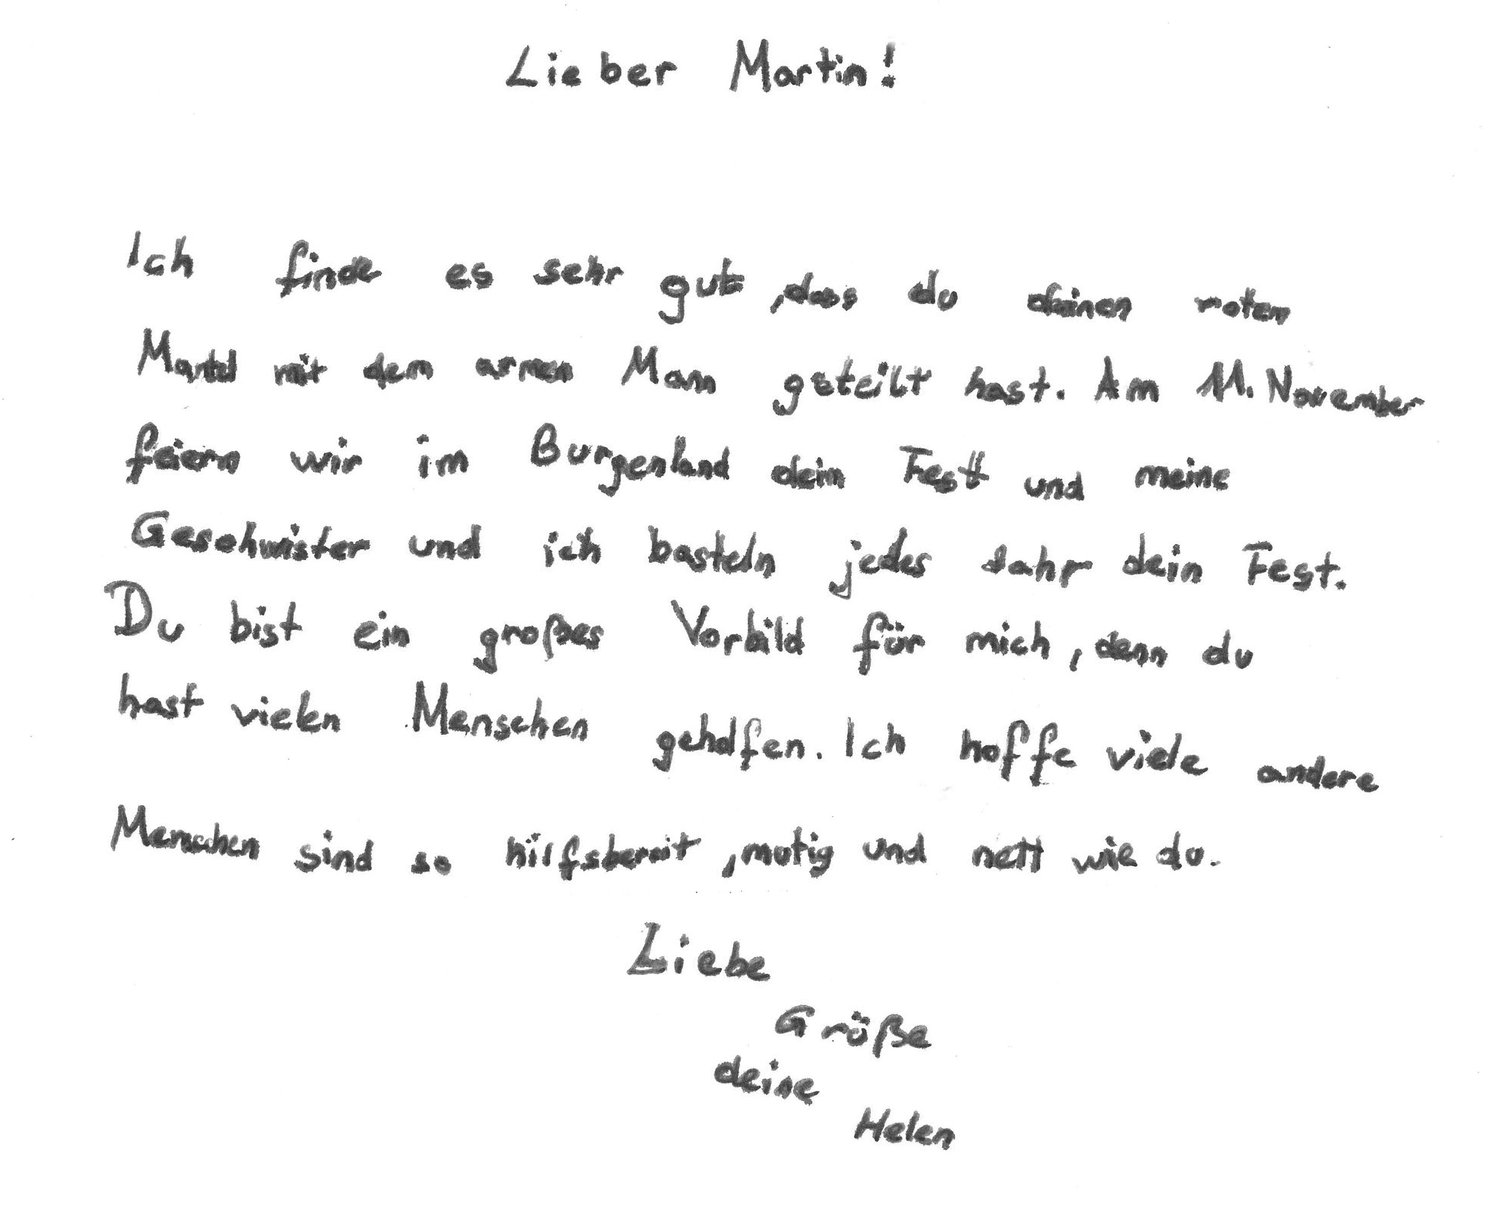 Lieber Martin!
Ich finde es sehr gut, dass du deinen roten
Mantel mit dem armen Mann geteilt hast. Am 11. November
feiern wir im Burgenland dein Fest und meine
Geschwister und ich basteln jedes Jahr dein Fest.
Du bist ein großes Vorbild für mich, denn du
hast vielen Menschen geholfen. Ich hoffe viele andere
Menschen sind so hilfsbereit, mutig und nett wie du.
Liebe
Größe
deine
Helen